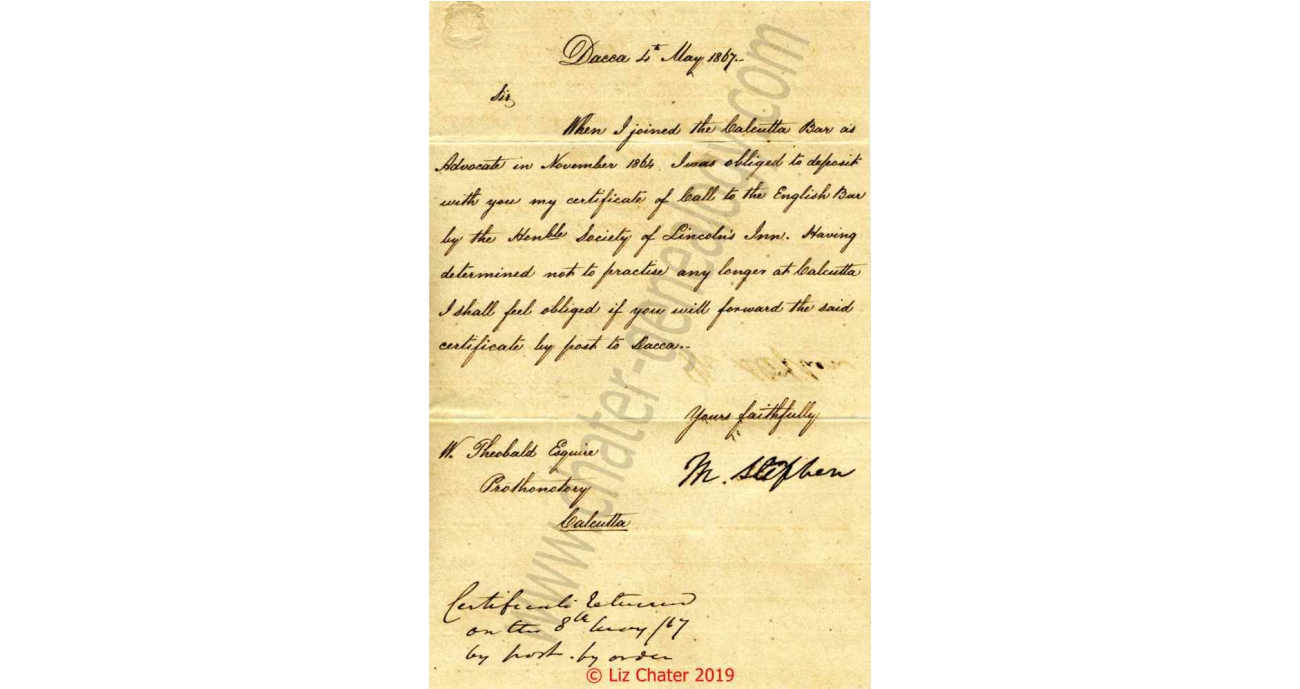 Dacca 4th May 1867.-
Sir,
When I joined the Calcutta Bar as
Advocate in November 1864 I was obliged to deposit
with you my certificate of Call to the English Bar
by the Honble Society of Lincoln's Inn. Having
determined not to practise any longer at Calcutta
I shall feel obliged if you will forward the said
certificate by post to Dacca.-
Yours faithfully
M. Stephen
W. Theobald Esquire
Prothonotory
Calcutta
Certificate returned
on the 8th May /67
by post. by order
www.chater-genealogy.com
© Liz Chater 2019